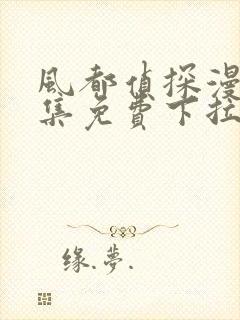 風都偵探漫
集免費下拉
缘.夢.